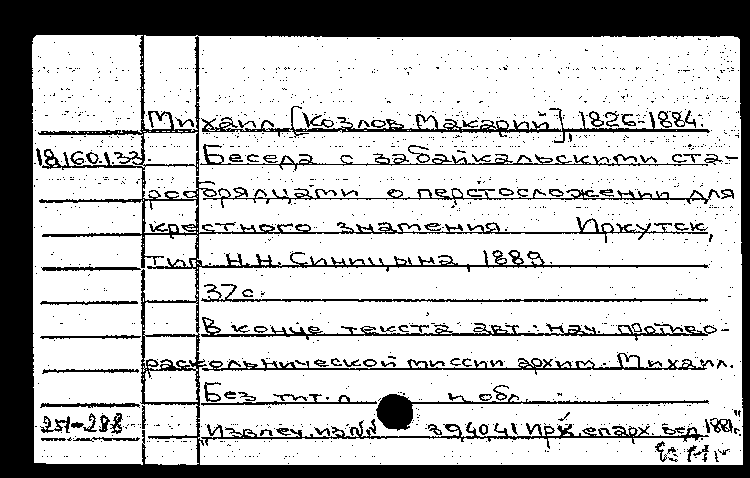 Михаил, [Козлов Макарий], 1826-1884.
18.160.1.33. Беседа с забайкальскими ста-
рообрядцами о перстосложении для
крестного знамения. Иркутск,
тип. Н.Н. Синицына, 1889.
37 с.
В конце текста авт.: нач. противо-
раскольнической миссии архим. Михаил.
Без тит. л и обл.
251-288 "Извлеч. из №№ 39,40,41 Ирк. епарх. вед. 1881г."